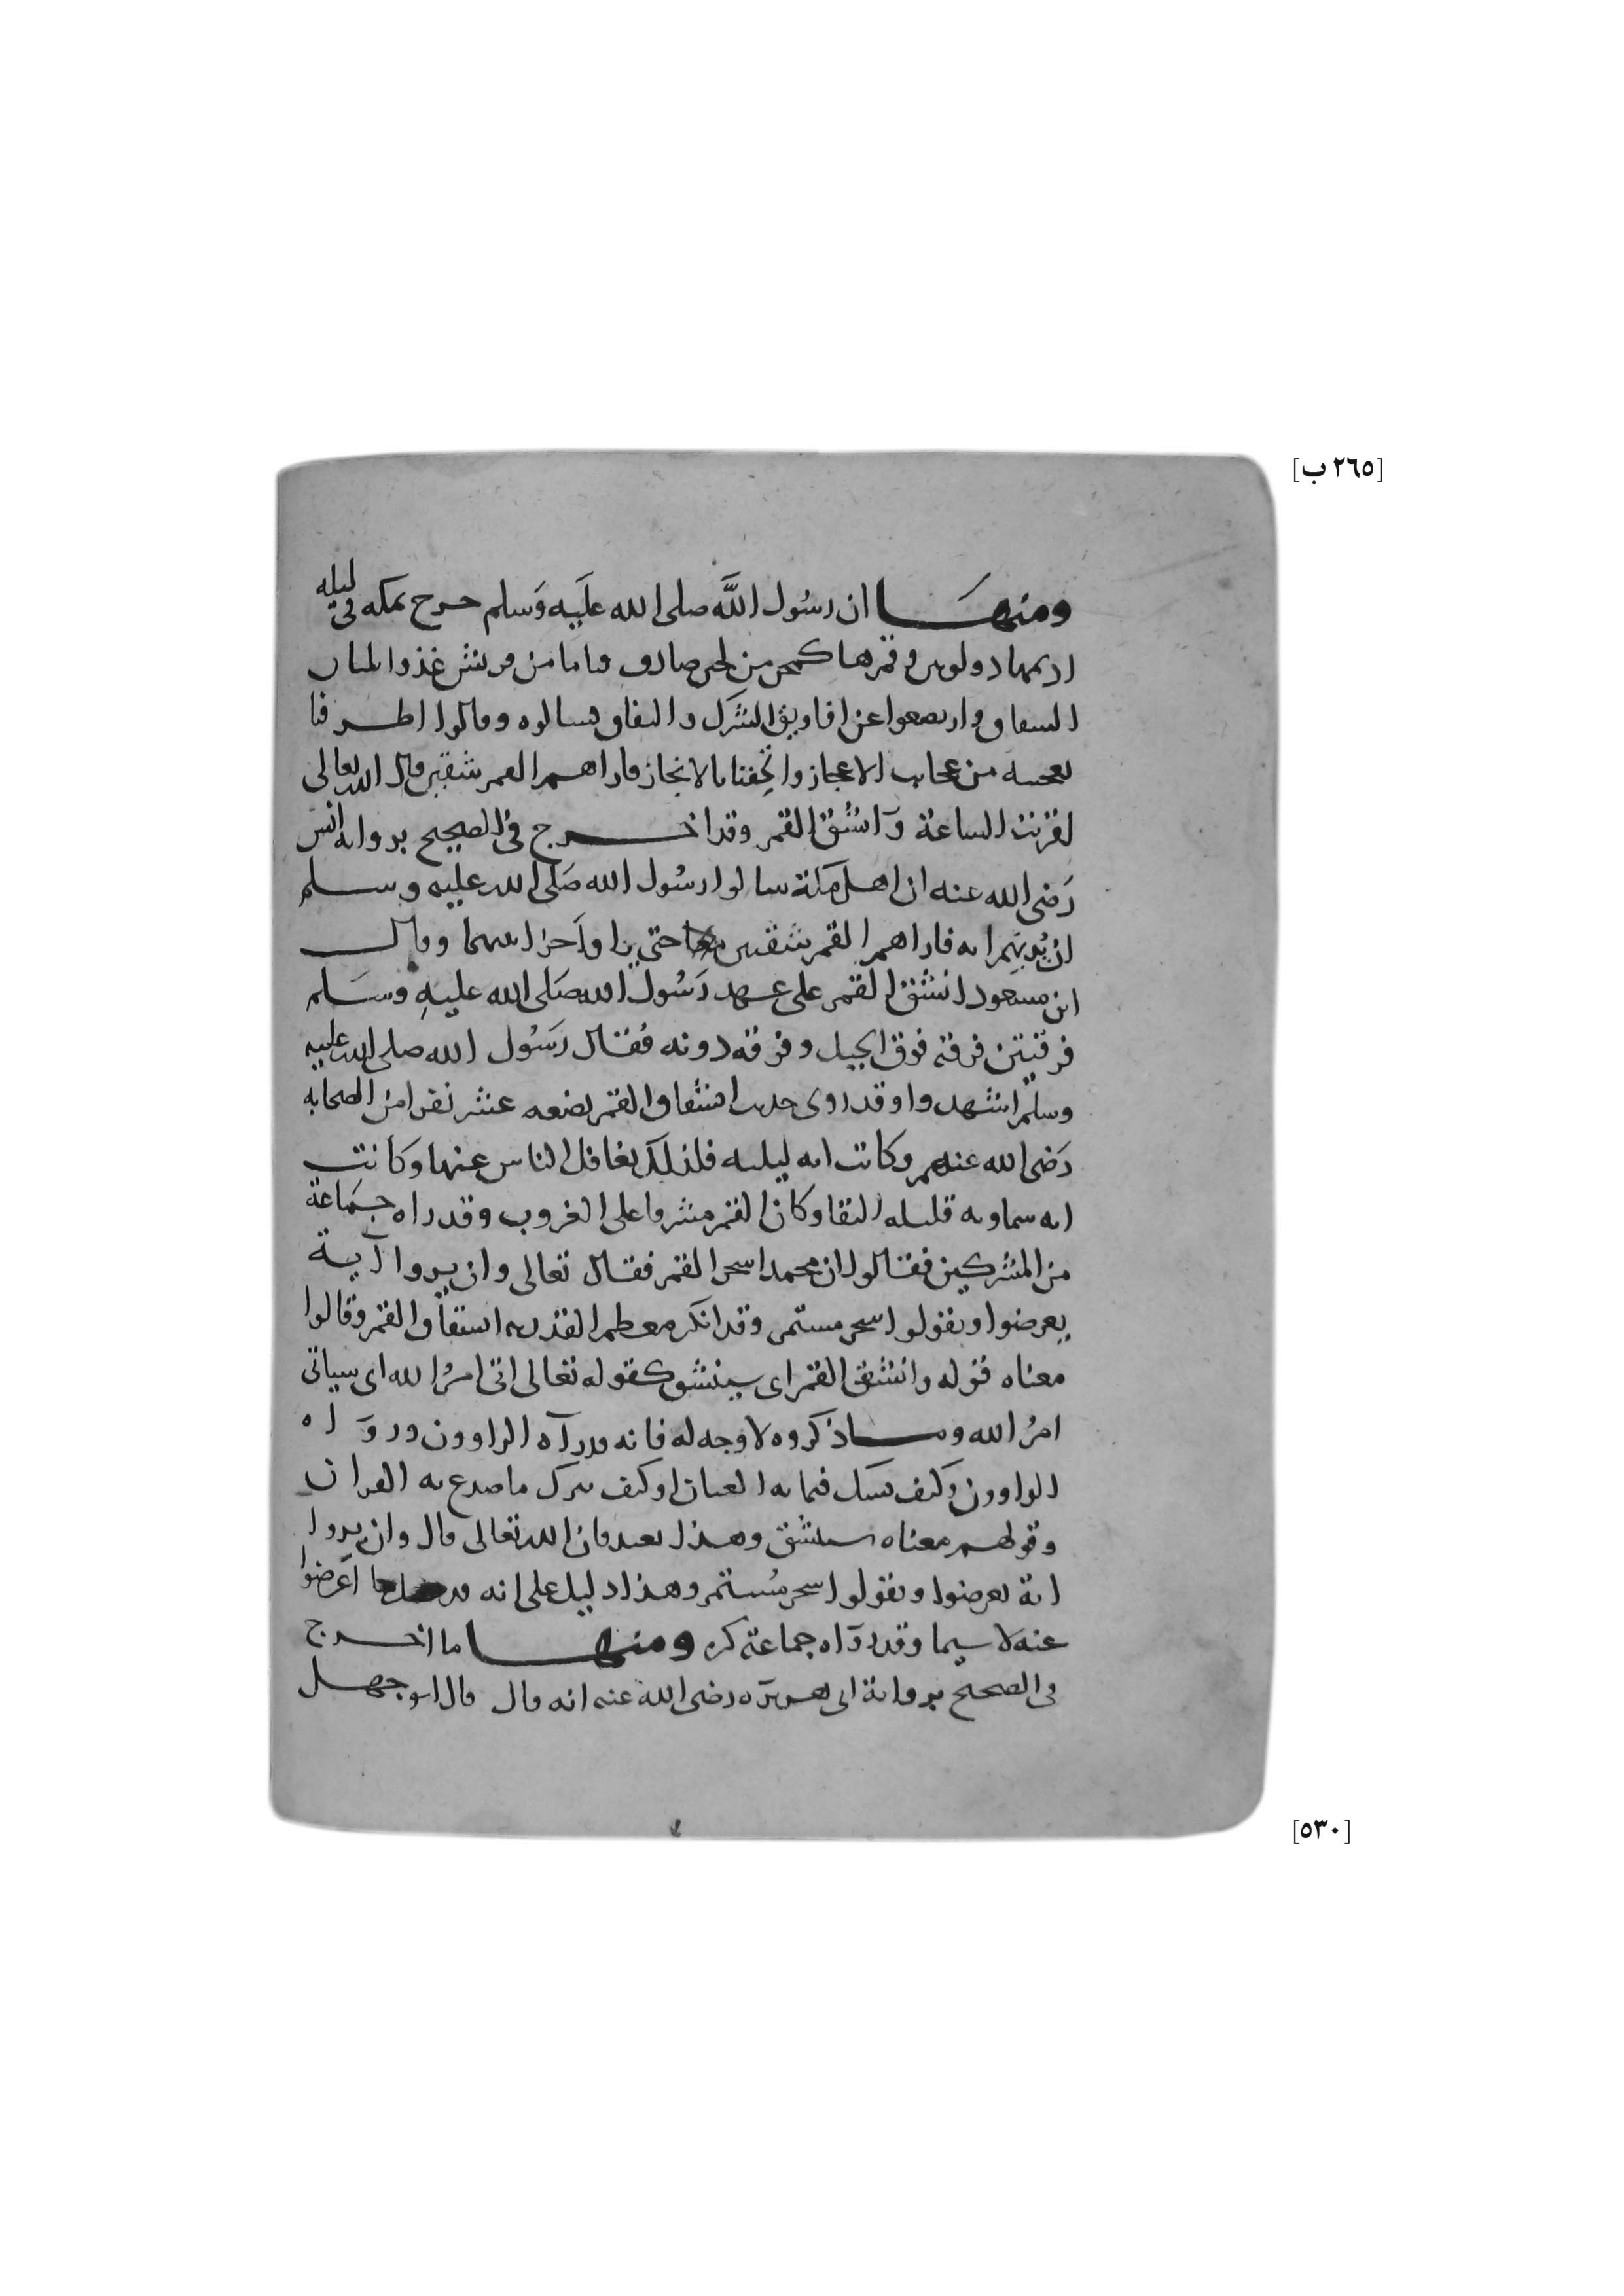 [٢٦٥ ب]
ومنها ان رسول الله صلى الله عليه وسلم خرج بمكه في ليله
اديمها وقمرها من قريش غذوا
النفاق وارتضعوا عن افاويق الشرك والنفاق فسالوه وقالوا اطرفنا
بعجيبه من عجايب الاعجاز واتحفنا بالانجاز فاراهم القمر شقين قال الله تعالى
اقتربت الساعة وانشق القمر وقد اخرج في الصحيح برواية انس
رضى الله عنه ان اهل مكة سالوا رسول الله صلى الله عليه وسلم
ان يريهم اية فاراهم القمر شقين حتى راوا حرا بينهما وقال
ابن مسعود انشق القمر على عهد رسول الله صلى الله عليه وسلم
فرقتين فرقة فوق الجبل وفرقه دونه فقال رسول الله صلى الله عليه
وسلم اشهدوا وقد روى حديث انشقاق القمر بضعه عشر نفرا من الصحابه
رضى الله عنهم وكانت ايه ليليه فلذلك تغافل الناس عنها وكانت
ايه سماويه قليله البقا وكان القمر مشرفا على الغروب وقد راه جماعة
من المشركين فقالوا ان محمدا سحر القمر فقال تعالى وان يروا آية
يعرضوا ويقولوا سحر مستمر وقد انكر معظم القدريه انشقاق القمر وقالوا
معناه قوله وانشق القمر اى سينشق كقوله تعالى اتى امر الله اى سياتى
امر الله وما ذكروه لا وجه له فانه قد رآه الراوون ورواه
الراوون وكيف يشك فيما به العيان او كيف يترك ما صدع به القران
وقولهم معناه سينشق وهذا بعيد فان الله تعالى قال وان يروا
اية يعرضوا ويقولوا سحر مستمر وهذا دليل على انه قد اعرضوا
عنه لا سيما وقد رواه جماعة ومنها ما اخرج
في الصحيح برواية ابى هريره رضى الله عنه انه قال قال ابو جهل
[٥٣٠]